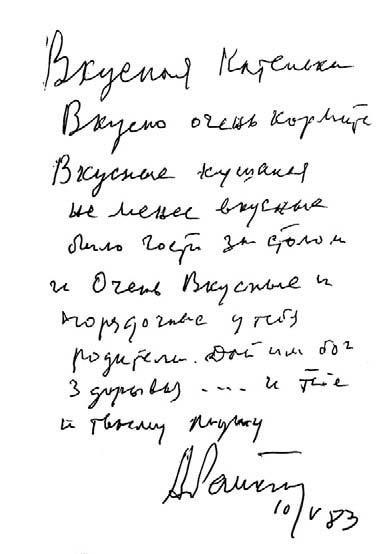 Вкусная Катенька
Вкусно очень кормите
Вкусные кушания
не менее вкусные
были гости за столом
и Очень Вкусные и
порядочные у тебя
родители. Дай им бог
здоровья .... и тебе
и твоему мужу
10/V 83